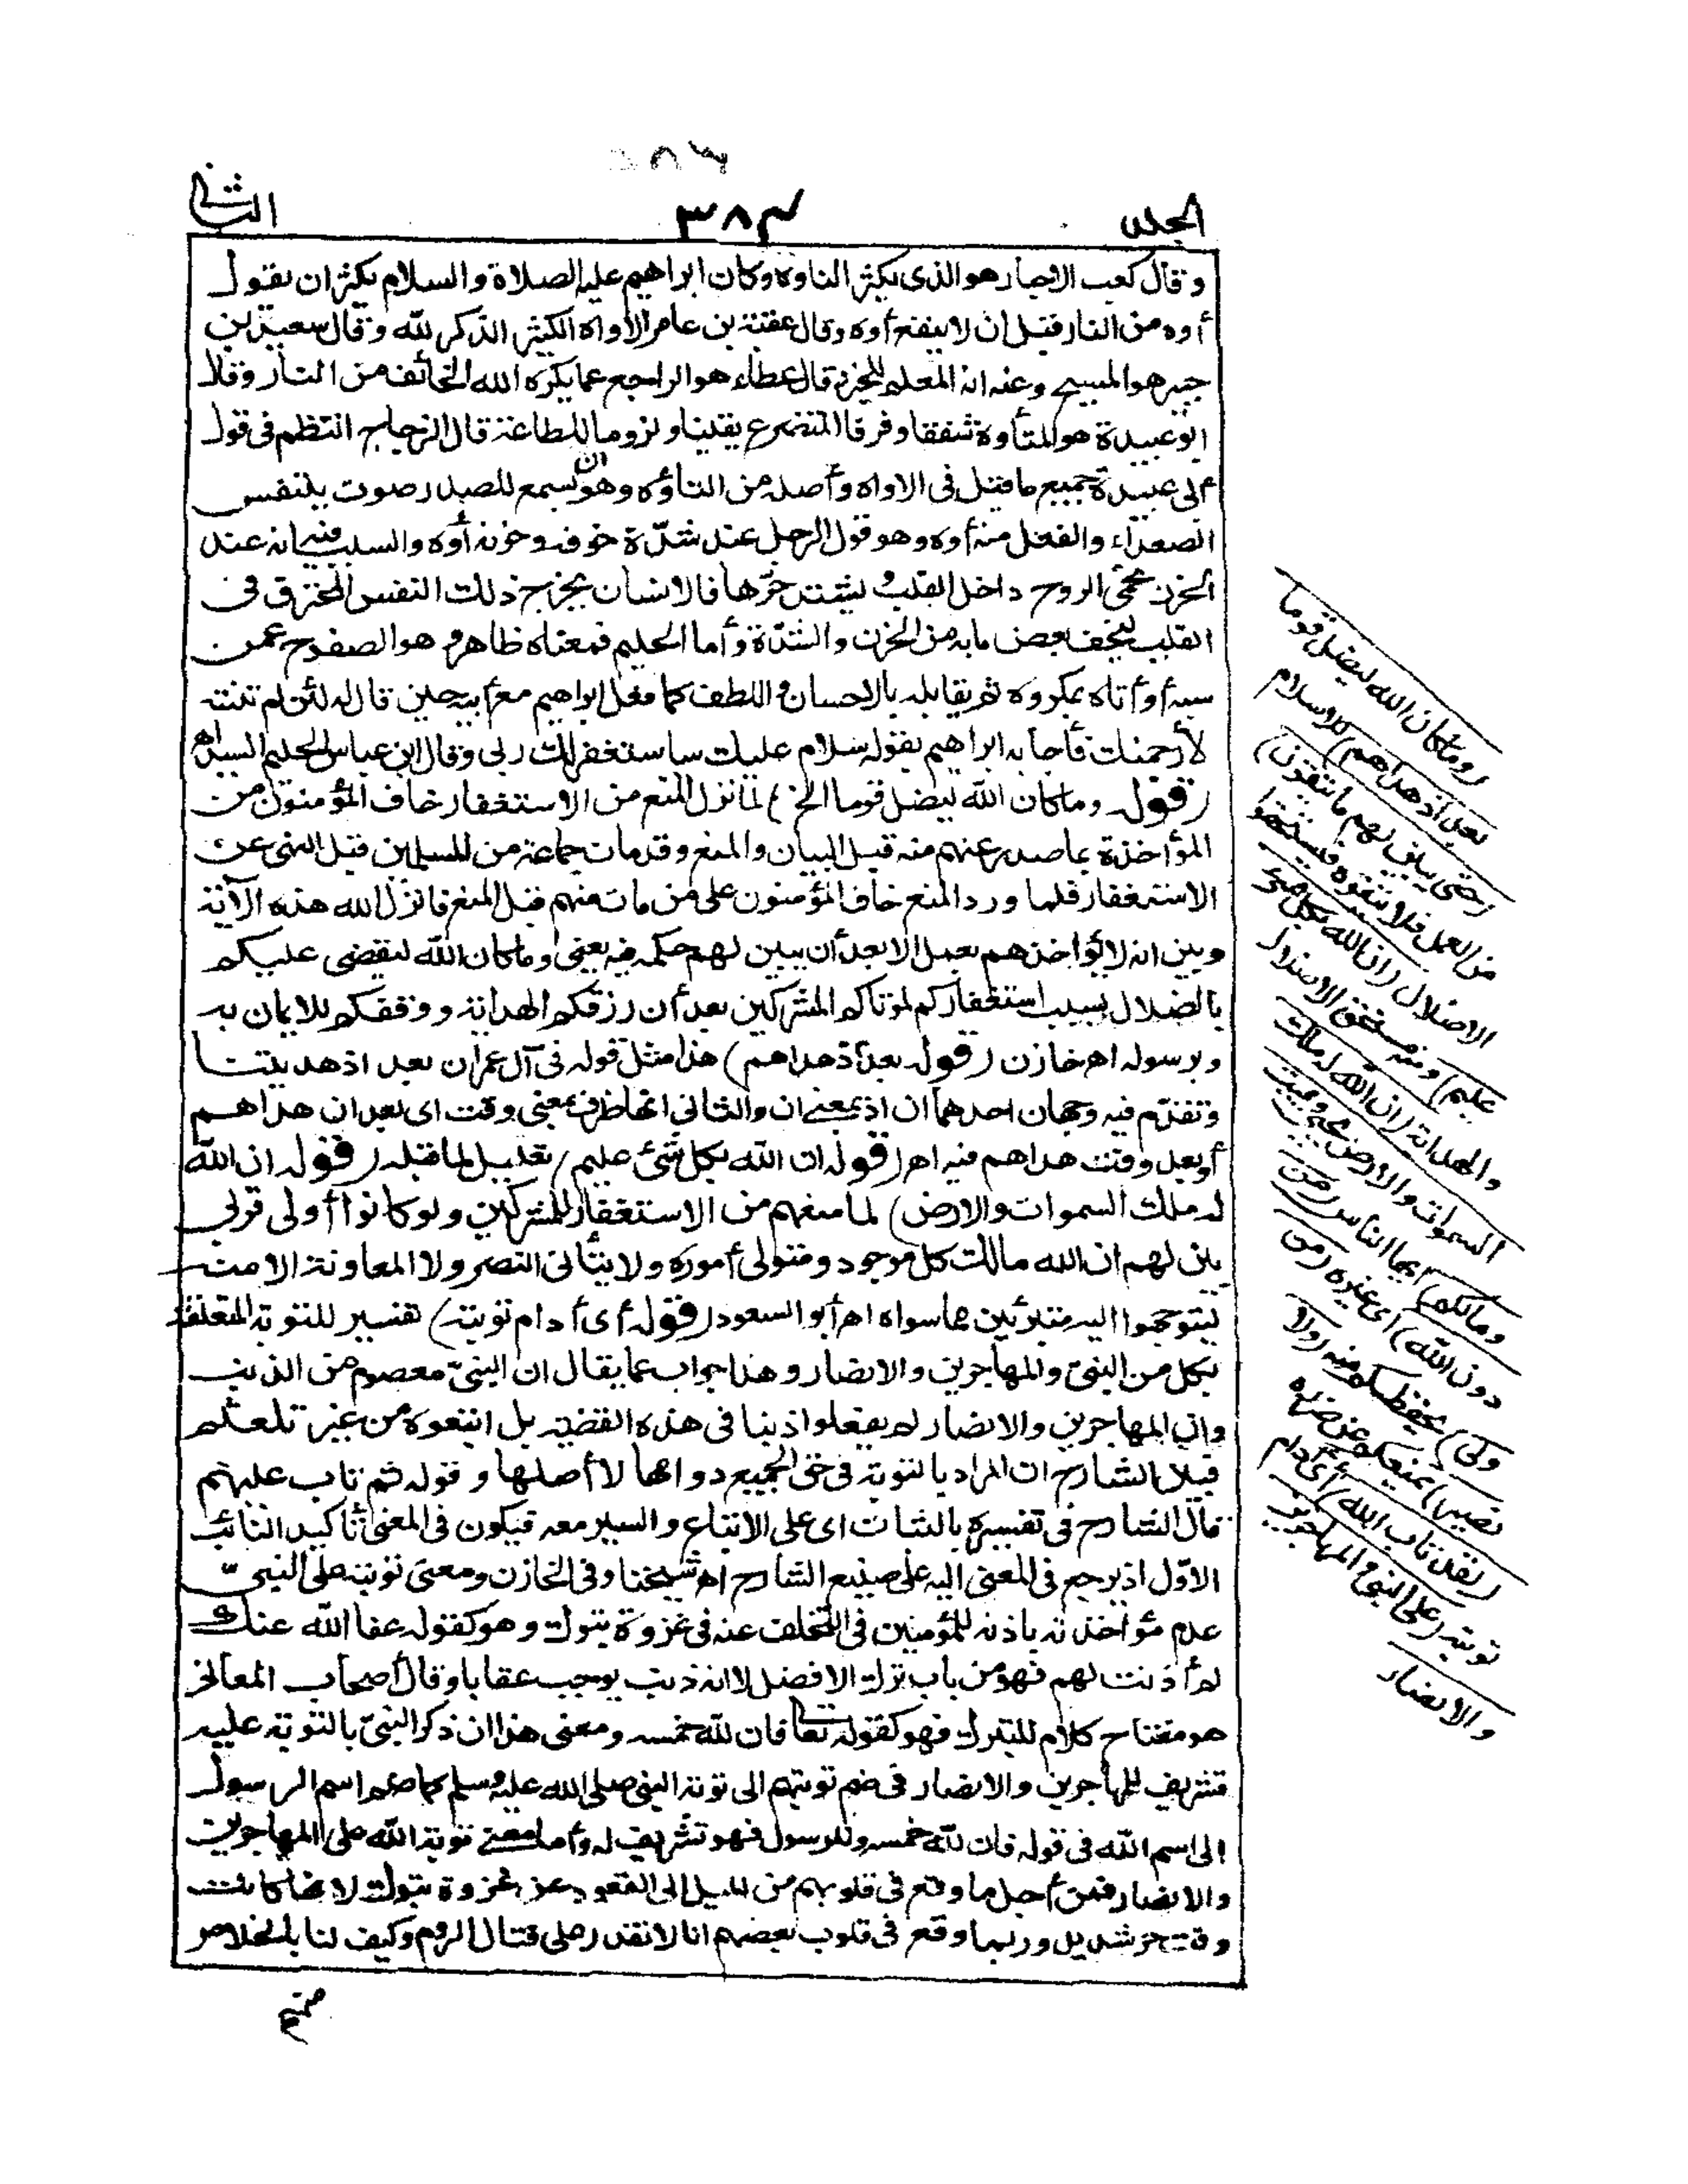 الجلد
٣٨٤
الثانى
وقال كعب الاحبار هو الذى يكثر التاوه وكان ابراهيم عليه الصلاة والسلام يكثر ان يقول
أوه من النار قبل ان لا ينفع أوه وقال عقبة بن عامر الأواه الكثير الذكر لله وقال سعيد بن
جبير هو المسبح وعنه انه المعلم للخير وقال عطاء هو الراجع عما يكره الله الخائف من النار وقال
ابو عبيدة هو المتأوه شفقا وفرقا المتضرع يقينا ولزوما للطاعة قال الزجاج انتظم فى قول
أبى عبيدة جميع ما قيل فى الاواه وأصله من التأوه وهو ان يسمع للصدر صوت بتنفس
الصعداء والفعل منه أوه وهو قول الرجل عند شدة خوفه وحزنه أوه والسبب فيه انه عند
الحزن تحمى الروح داخل القلب ويشتد حرها فالانسان يخرج ذلك النفس المحترق فى
القلب ليخف بعض ما به من الحزن والشدة وأما الحليم فمعناه ظاهر وهو الصفوح عمن
سبه أو أتاه بمكروه ثم يقابله بالاحسان واللطف كما فعل ابراهيم مع أبيه حين قال له لئن لم تنته
لأرجمنك فأجابه ابراهيم بقوله سلام عليك سأستغفر لك ربى وقال ابن عباس الحليم السيد اه
(قوله وما كان الله ليضل قوما الخ) لما نزل المنع من الاستغفار خاف المؤمنون من
المؤاخذة بما صدر عنهم منه قبل البيان والمنع وقد مات جماعة من المسلمين قبل النهى عن
الاستغفار فلما ورد المنع خاف المؤمنون على من مات منهم قبل المنع فانزل الله هذه الآية
وبين انه لا يؤاخذهم بعمل الا بعد أن يبين لهم حكمه فيه يعنى وما كان الله ليقضى عليكم
بالضلال بسبب استغفاركم لموتاكم المشركين بعد أن رزقكم الهداية ووفقكم للايمان به
وبرسوله اهـ خازن (قوله بعد اذ هداهم) هذا مثل قوله فى آل عمران بعد اذ هديتنا
وتقدم فيه وجهان احدهما ان اذ بمعنى ان والثانى انها ظرف بمعنى وقت اى بعد ان هداهم
أو بعد وقت هداهم فيه اهـ (قوله ان الله بكل شئ عليم) تعليل لما قبله (قوله ان الله
له ملك السموات والارض) لما منعهم من الاستغفار للمشركين ولو كانوا أولى قربى
بين لهم ان الله مالك كل موجود ومتولى أموره ولا يتأتى النصر ولا المعاونة الا منه
ليتوجهوا اليه متبرئين عما سواه اهـ أبو السعود (قوله أى أدام توبته) تفسير للتوبة المتعلقة
بكل من النبى والمهاجرين والانصار وهذا جواب عما يقال ان النبى معصوم من الذنب
وان المهاجرين والانصار لم يفعلوا ذنبا فى هذه القضية بل اتبعوه من غير تلعثم
فبين الشارح ان المراد بالتوبة فى حق الجميع دوامها لا أصلها وقوله ثم تاب عليهم
قال الشارح فى تفسيره بالثبات اى على الاتباع والسير معه فيكون فى المعنى تأكيد التائب
الاول اذ يرجع فى المعنى اليه على صنيع الشارح اهـ شيخنا وفى الخازن ومعنى توبته على النبى
عدم مؤاخذته باذنه للمؤمنين فى التخلف عنه فى غزوة تبوك وهو كقوله عفا الله عنك
لم أذنت لهم فهو من باب ترك الافضل لا انه ذنب يوجب عقابا وقال أصحاب المعانى
هو مفتاح كلام للتبرك فهو كقوله تعالى فان لله خمسه ومعنى هذا ان ذكر النبى بالتوبة عليه
تشريف للمهاجرين والانصار فى ضم توبتهم الى توبة النبى صلى الله عليه وسلم كما ضم اسم الرسول
الى اسم الله فى قوله فان لله خمسه وللرسول فهو تشريف له وأما معنى توبة الله على المهاجرين
والانصار فمن أجل ما وقع فى قلوبهم من الميل الى القعود عن غزوة تبوك لانها كانت
وقت حر شديد وربما وقع فى قلوب بعضهم انا لا نقدر على قتال الروم وكيف لنا بالخلاص
(وما كان الله ليضل قوما
بعد اذ هداهم) للاسلام
(حتى يبين لهم ما يتقون)
من العمل فلا يتقوه فيستحقوا
الاضلال (ان الله بكل شئ
عليم) ومنه مستحق الاضلال
والهداية (ان الله له ملك
السموات والارض يحيى ويميت
ومالكم) أيها الناس (من
دون الله) أى غيره (من
ولى) يحفظكم منه (ولا
نصير) يمنعكم عن ضرره
(لقد تاب الله) أى أدام
توبته (على النبى والمهاجرين
والانصار